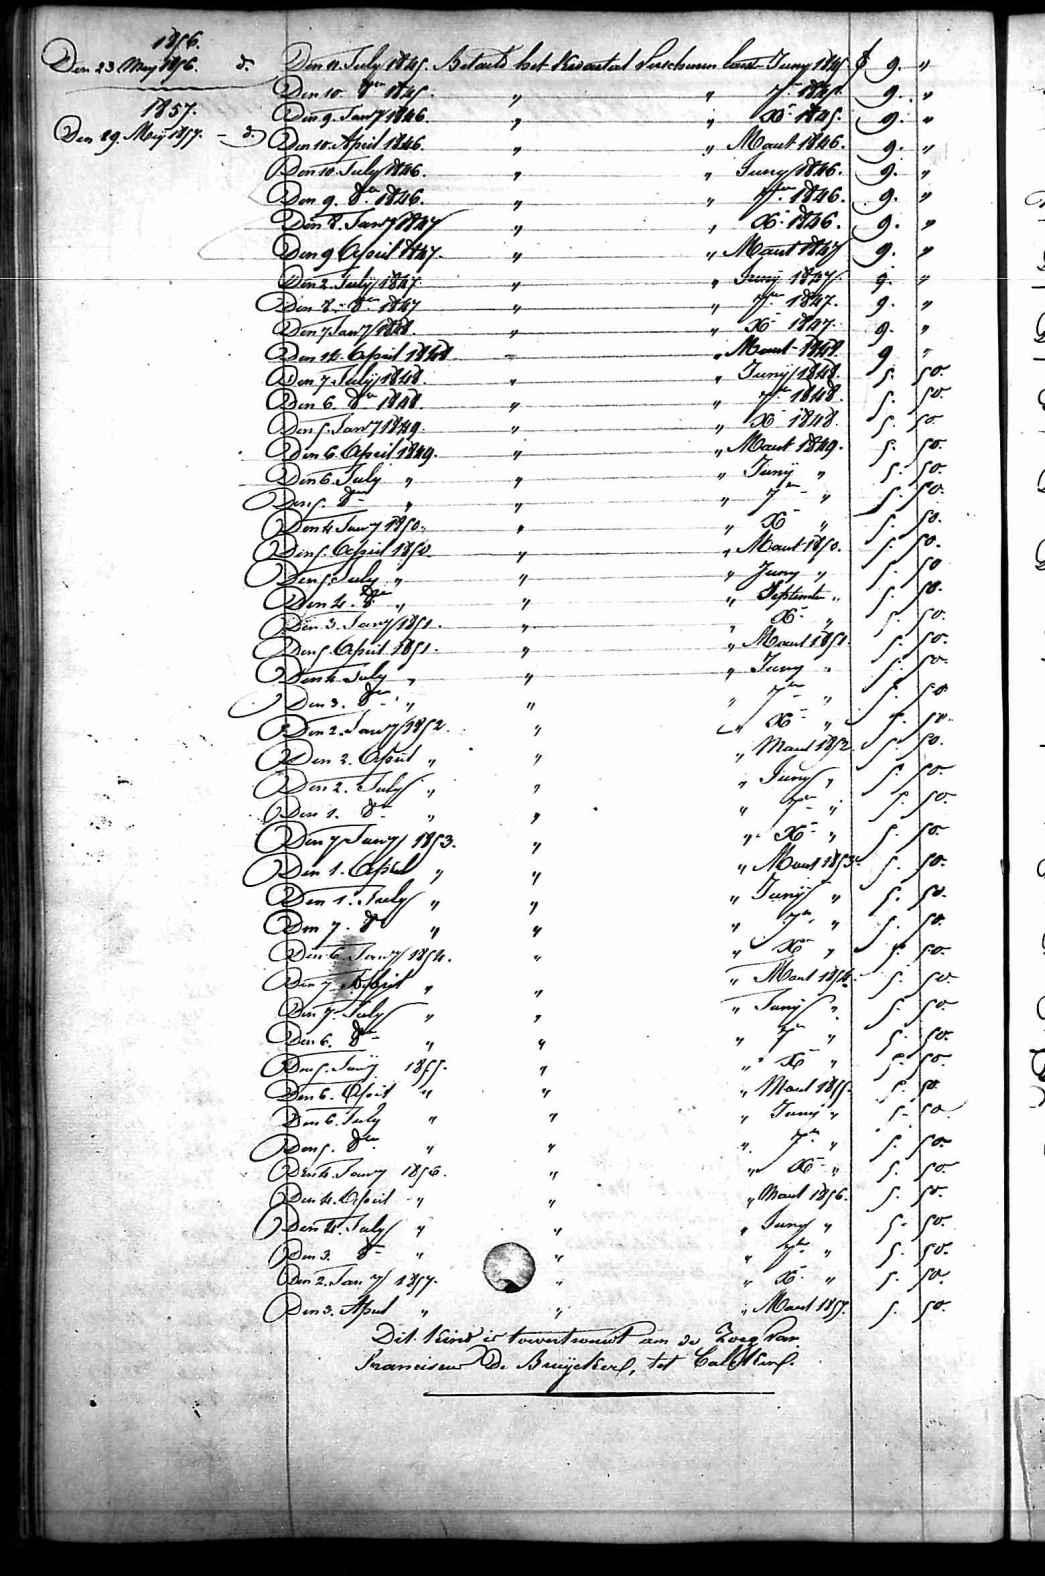 1856.
Den 23 Meij 1856. d.
1857.
Den 29. Meij 1857. - d.
Den 11. July 1845. Betaald het Kwartaal Verschenen laast Juny 1845. f 9. "
Den 10. 8ber 1845. " " 7ber 1845. 9. "
Den 9. Jany 1846. " " Xber 1845. 9. "
Den 10. April 1846. " " Maart 1846. 9. "
Den 10. July 1846. " " Juny 1846. 9. "
Den 9. 8ber 1846. " " 7ber 1846. 9. "
Den 8. Jany 1847 " " Xber 1846. 9. "
Den 9 April 1847. " " Maart 1847 9. "
Den 2. July 1847. " " Juny 1847. 9. "
Den 8. 8ber 1847 " " 7ber 1847. 9. "
Den 7 Jany 1848. " " Xber 1847. 9. "
Den 14. April 1848. " " Maart 1848. 9 "
Den 7 July 1848. " " Junij 1848. 5. 50.
Den 6. 8ber 1848. " " 7ber 1848. 5. 50.
Den 5. Jany 1849. " " Xber 1848. 5. 50.
Den 6. April 1849. " " Maart 1849. 5. 50.
Den 6. July " " " Junij " 5. 50.
Den 5. 8ber " " " 7ber " 5. 50.
Den 4 Jany 1850. " " Xber " 5. 50.
Den 5. April 1850. " " Maart 1850. 5. 50.
Den 5. July " " " Juny " 5. 50
Den 4. 8ber " " " September " 5. 50.
Den 3. Jany 1851. " " Xber " 5. 50.
Den 5 April 1851. " " Maart 1851 5. 50.
Den 4 July " " " Juny " 5. 50.
Den 3. 8ber " " " 7ber " 5. 50
Den 2. Jany 1852. " " Xber " 5. 50.
Den 2. April " " " Maart 1852. 5. 50.
Den 2. July " " " Juny " 5. 50.
Den 1. 8ber " " " 7ber " 5. 50.
Den 7 Jany 1853. " " Xber " 5. 50.
Den 1. April " " " Maart 1853. 5. 50.
Den 1. July " " " Junij " 5. 50.
Den 7. 8ber " " " 7ber " 5. 50.
Den 6. Jany 1854. " " Xber " 5. 50.
Den 7 April " " " Maart 1854. 5. 50.
Den 7. July " " " Junij " 5. 50.
Den 6. 8ber " " " 7ber " 5. 50.
Den 5. Jany 1855. " " Xber " 5. 50.
Den 6. April " " " Maart 1855. 5. 50.
Den 6. July " " " Juny " 5. 50.
Den 5. 8ber " " " 7ber " 5. 50.
Den 4. Jany 1856. " " Xber " 5. 50.
Den 4. April " " " Maart 1856. 5. 50.
Den 4. July " " " Juny " 5. 50.
Den 3. 8ber " " " 7ber " 5. 50.
Den 2. Jany 1857. " " Xber " 5. 50.
Den 3. April " " " Maart 1857. 5. 50.
Dit Kind is toevertrouwt aan de Zorg van
Franciscus De Bruijcker, tot Calcken.